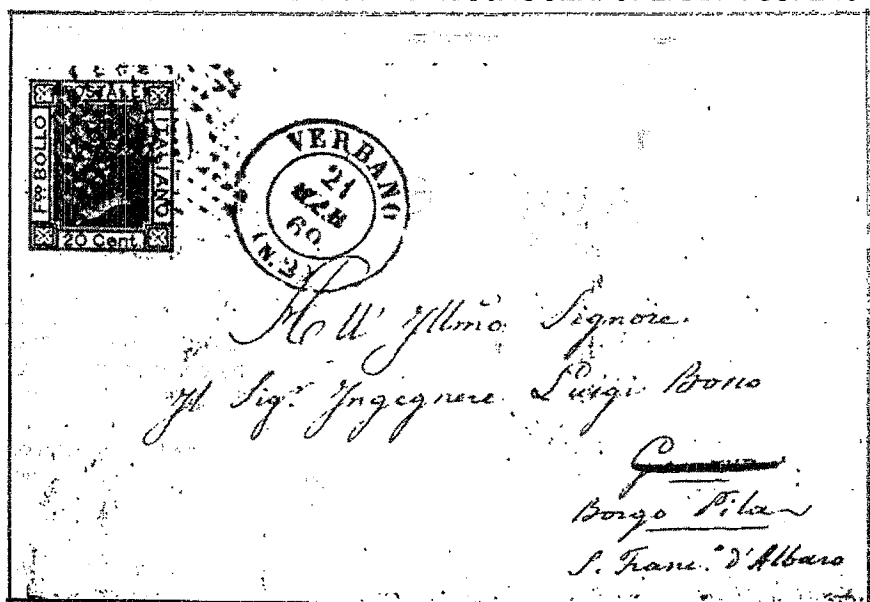 POSTALE
Fco BOLLO
ITALIANO
20 Cent.
VERBANO
21
MAR
69
(N.2)
All' Illmo Signore
Il Sigr Ingegnere Luigi Bono
Borgo Pila
S. Franc.o d'Albaro